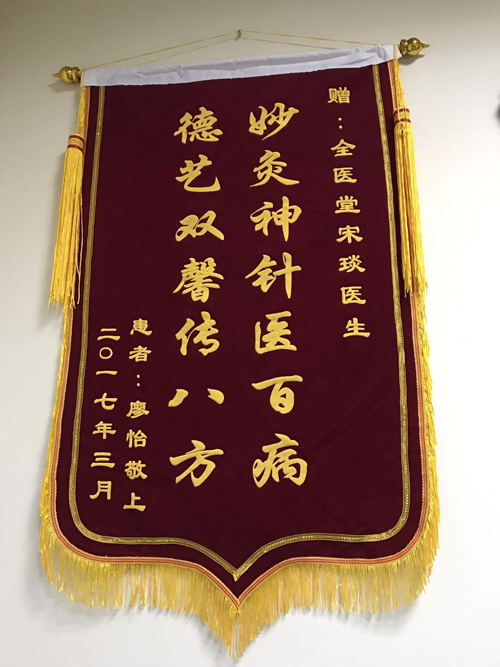 赠：全医堂宋琰医生
妙灸神针医百病
德艺双馨传八方
患者：廖怡敬上
二〇一七年三月